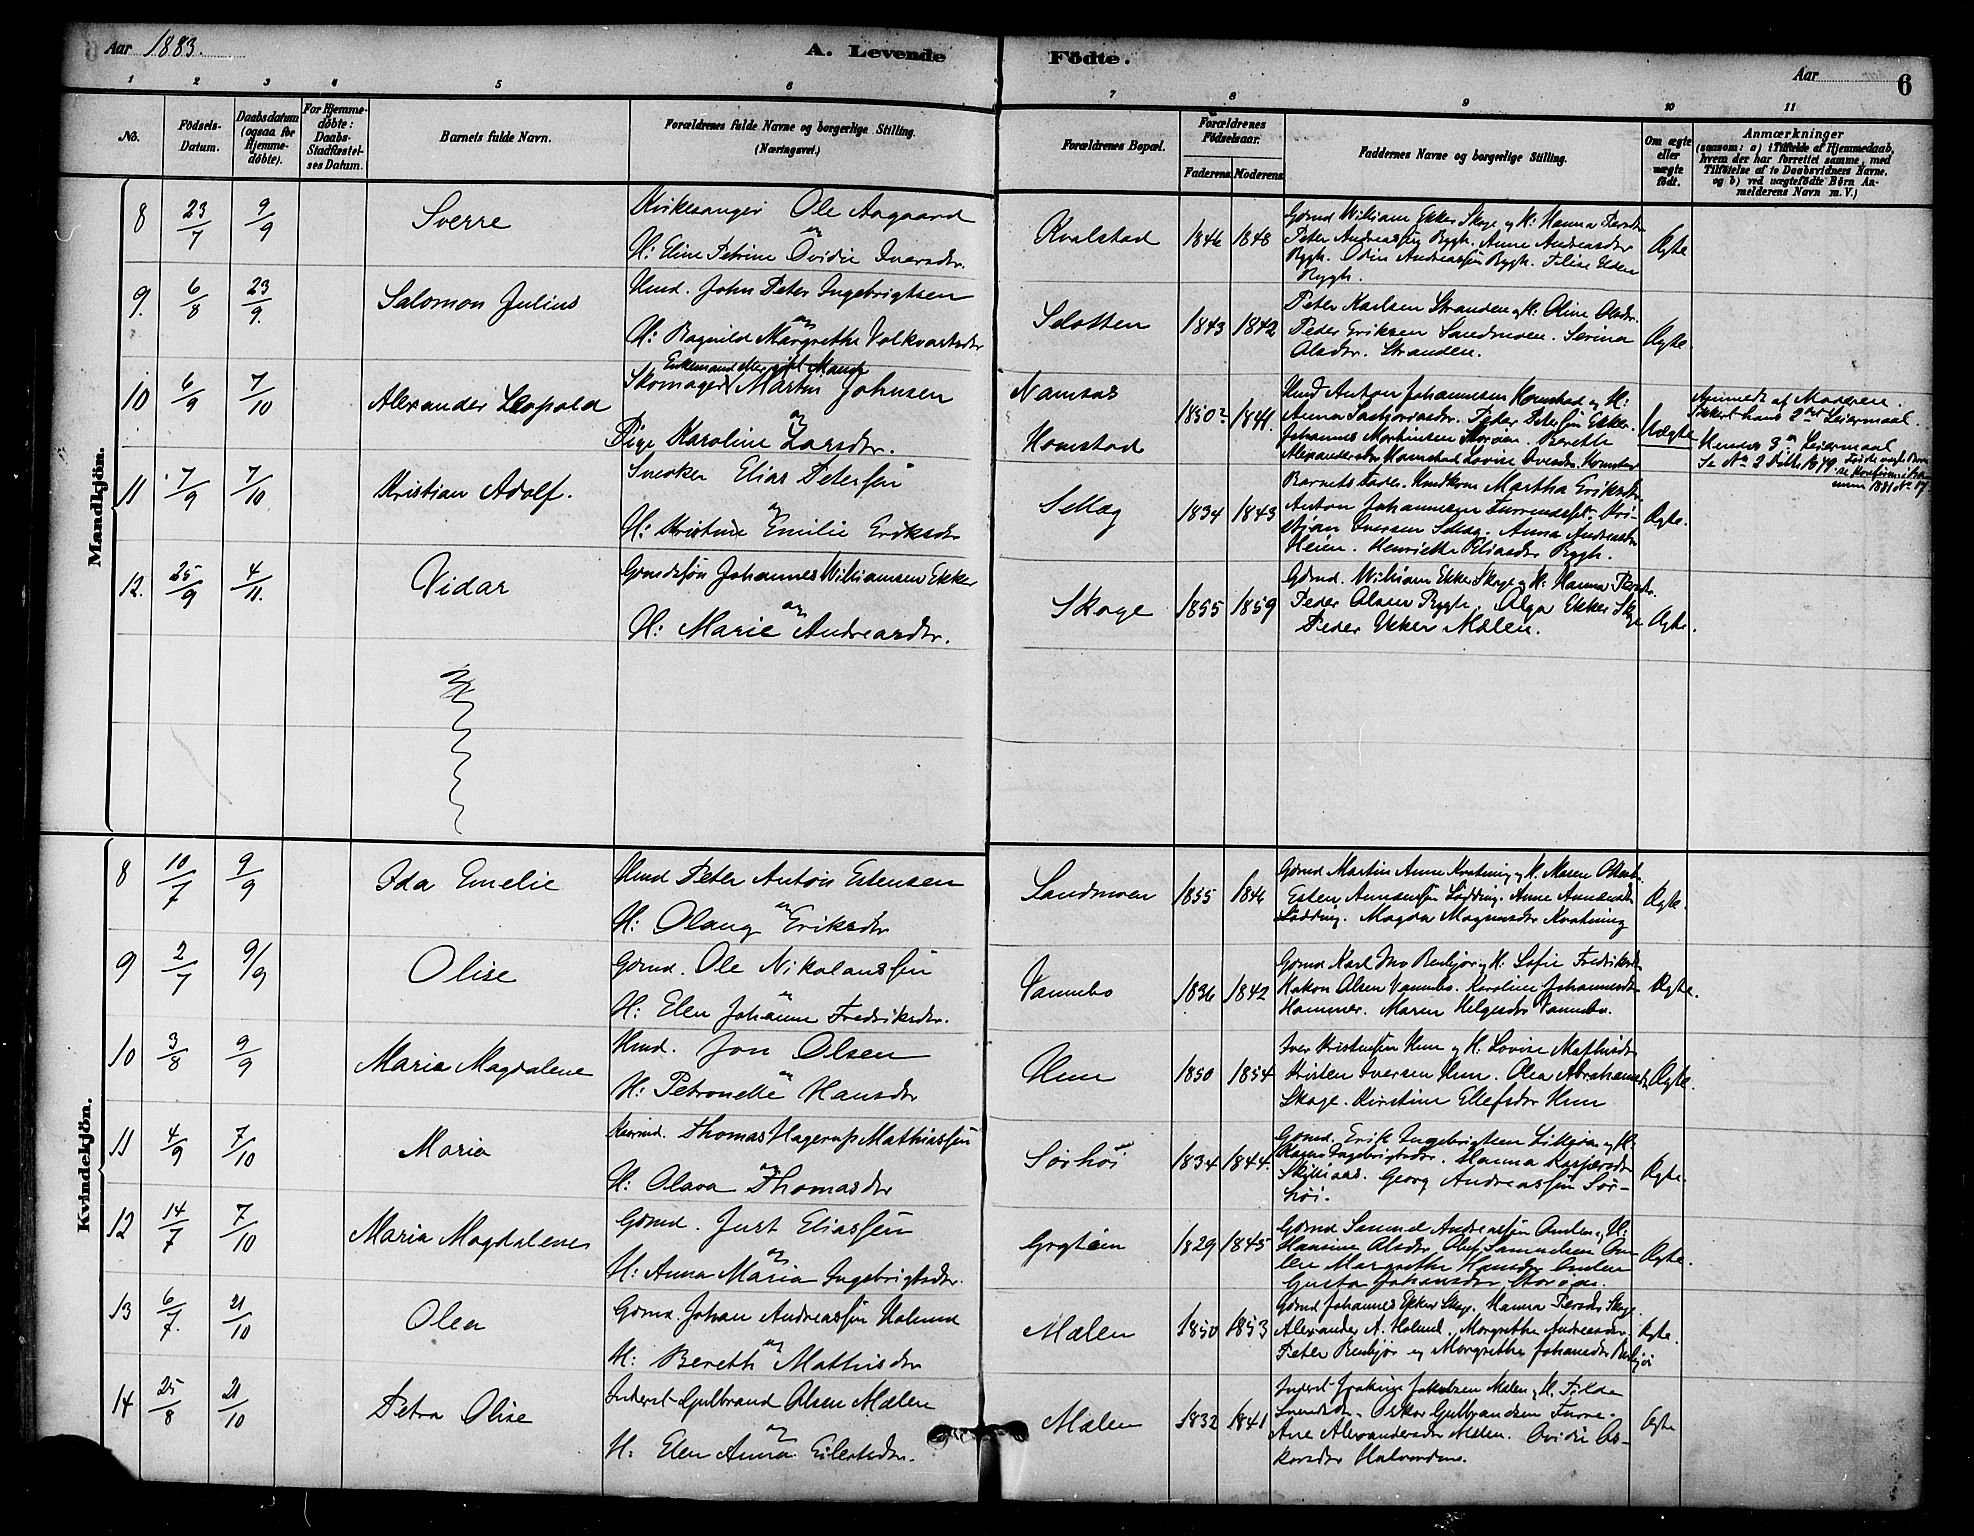 Aar 1883.
A. Levende Födte.
Aar
6
1 2 3 4 5 6 7 8 9 10 11
No.
Födsels-Datum.
Daabsdatum (ogsaa for Hjemme-döbte).
For Hjemme-döbte: Daabs-Stadfæstel-ses Datum.
Barnets fulde Navn.
Forældrenes fulde Navne og borgerlige Stilling.
(Næringsvei.)
Forældrenes Bopæl.
Forældrenes Födselsaar.
Faderens Moderens
Faddernes Navne og borgerlige Stilling.
Om ægte eller uægte födt.
Anmærkninger
(saasom: a) i Tilfælde af Hjemmedaab,
hvem der har forrettet samme, med
Tilföielse af to Daabsvidners Navne.
og b) ved uægtefödte Börn An-
melderens Navn m. V.)
Mandkjön.
8 23/7 9/9 Sverre
Kirkesanger Ole Aagaard
og
H: Eline Petrine Ovidie Iversdtr.
Kvalstad 1846 1848
Gdmd William Ekker Skage og H: Hanna
Peter Andreassen Rygh. Anne Andreasdtr
Rygh. Odin Andreassen Rygh.
Rygh.
Ægte
9. 6/8 23/9. Salomon Julius
Hmd. John Peter Ingebrigtsen
og
H: Ragnild Margrethe Volkvartsdtr
Slotten 1843 1842
Peter Karlsen Stranden og H: Oline Olsdtr.
Peder Eriksen Sandmoen. Serina
Olsdtr. Stranden.
Ægte
10 6/9 7/10 Alexander Leopold
Enkemand eller gift Mand
Skomager Martin Johnsen
og
Pige Karoline Larsdtr.
Namsos
Homstad
1850? 1841.
Hmd Anton Johannesen Homstad og H:
Anna. Peder Petersen Ekker.
Johannes Martinsen. Berette
Alexandersdtr Homstad Lovise Ovesdtr. Homstad
Uægte
Anmeldt af Moderen.
Sikkert hans 2det Leiermaal.
Hendes 3die Leiermaal
Se No 2 1879
1881 No 17
11 7/9 7/10 Kristian Adolf.
Snedker Elias Petersen
og
H: Kristine Emilie Eriksdtr
Sellæg 1834 1843
Barnets Fader. Martha Eriksdtr
Anton Johannesen. Kri-
stian Iversen Sellæg. Anna Andreasdtr
Heien. Henriette Eliasdtr Rygh.
Ægte.
12. 25/9 4/11. Vidar
Gmdsøn Johannes Williamsen Ekker
og
H: Marie Andreasdtr.
Skage 1855 1859
Gdmd. William Ekker Skage og H: Hanna
Peder Olsen Rygh. Olga Ekker Skage
Peder Ekker Mælen.
Ægte.
Kvindekjön.
8 10/7 9/9 Ida Emelie
Hmd Peter Anton Estensen
og
H: Olaug Eriksdtr
Sandmoen 1855 1846
Gdmd Martin Kvatning og H. Maren
Esten Amundsen Lødding. Anne Amundsdtr
Lødding. Magda Magnusdtr Kvatning
Ægte.
9 2/7 9/9 Olise
Gdmd. Ole Nikolaussen
og
H: Elen Johanna Fredriksdtr.
Vannebo 1836 1842
Gdmd Karl Mo Benkjør og H: Sofie Fredriksdtr
Hakon Olsen Vannebo. Karoline Johannesdtr
Hammer. Maren Helgesdtr Vannebo.
Ægte.
10 3/8 9/9 Maria Magdalene
Hmd. Jon Olsen
og
H: Petronelle Hansdtr
Hun 1850 1854
Iver Kristensen Hun og H: Lovise Mathisdtr
Kristen Iversen Hun. Olea Abrahamsdtr
Skage. Kirstine Ellefsdtr Hun
Ægte.
11 4/9 7/10 Maria
Thomas Hagerup Mathiassen
og
H: Olava Thomasdtr
Sørhøi 1834 1844.
Gdmd. Erik Ingebrigtsen Lilleøen og H.
Ingebrigtsdtr. Hanna Kasparsdtr
Skilliaas. Georg Andreassen Sør-
høi.
Ægte.
12 14/7 7/10 Maria Magdalene
Gdmd. Just Eliassen
og
H: Anna Maria Ingebrigtsdtr.
Grytein 1829 1845
Gdmd Samuel Andreassen Amlien, H:
Hansine Olsdtr. Olof Samuelsen Am-
lien Margrethe Hansdtr Amlien
Gusta Johansdtr
Ægte.
13 6/7. 21/10 Olea
Gdmd. Johan Andreassen Holund
og
H: Bereth Mathisdtr
Mælen 1850 1853
Gdmd Johannes Ekker Skage. Hanna Skage.
Alexander A. Holund. Margrethe Andreasdtr.
Peter Benkjør og Margrethe Johansdtr Benkjør
Ægte.
14 25/8 21/10 Petra Olise
Inderst Gulbrand Olsen Mælen
og
H: Elen Anna Eilertsdtr.
Mælen 1832 1841
Inderst Jakobsen Mælen og H.
Oskar Gulbrandsen
Ane Alexandersdtr Mælen. Ovidie As-
Ægte